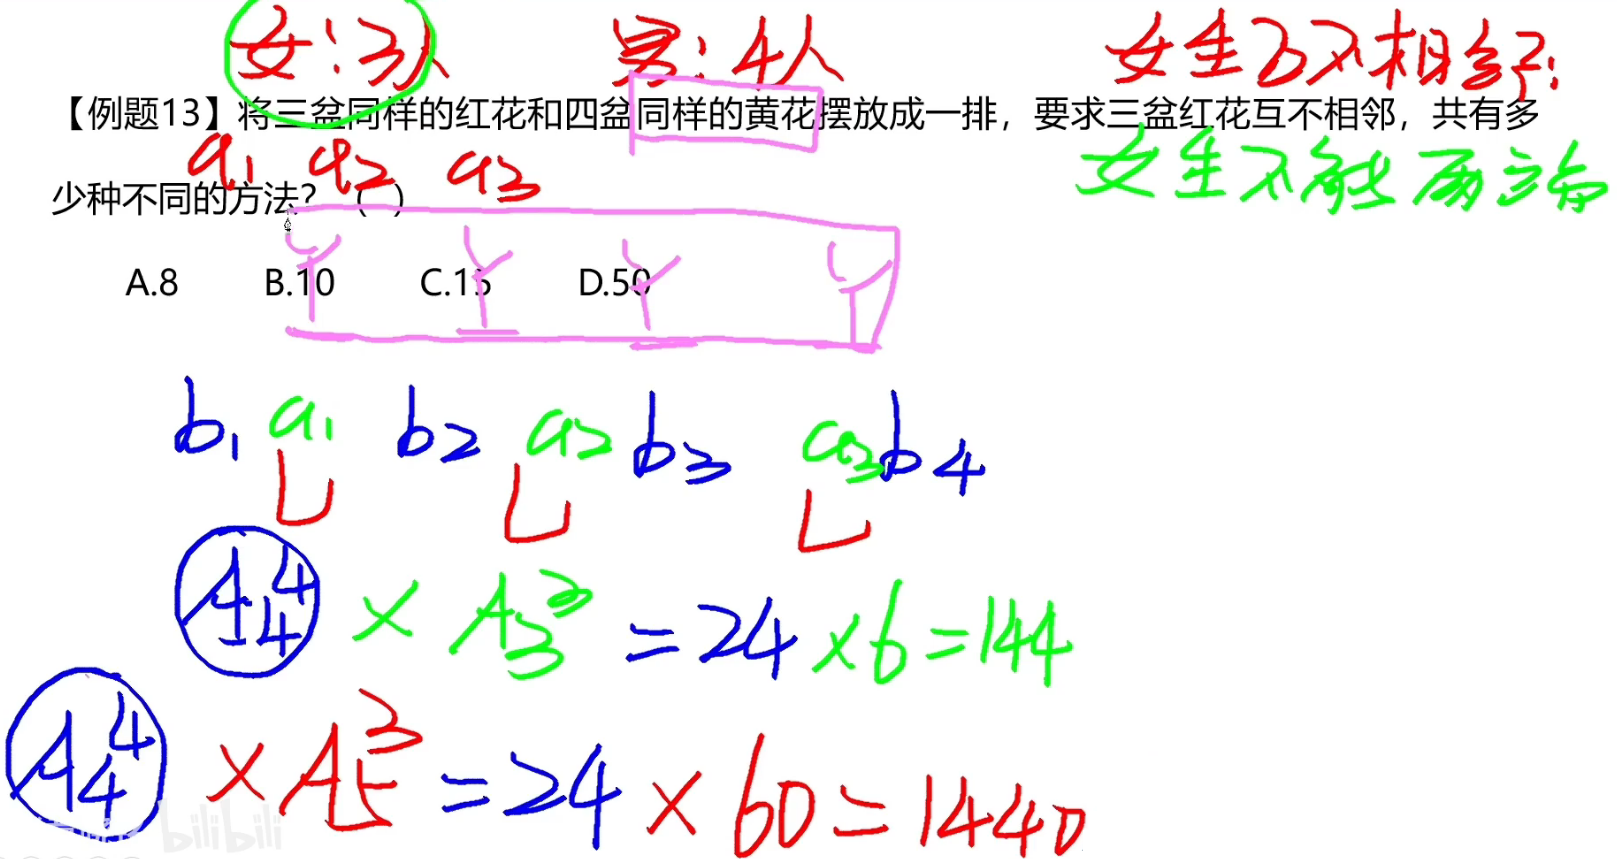 女:3人 男:4人 女生互不相邻:
【例题13】将三盆同样的红花和四盆同样的黄花摆放成一排，要求三盆红花互不相邻，共有多
a1 a2 a3 女生不能两端
少种不同的方法？（ ）
A.8 B.10 C.15 D.50
b1 a1 b2 a2 b3 a3 b4
A⁴₄ × A³₃ = 24 × 6 = 144
A⁴₄ × A³₅ = 24 × 60 = 1440
bilibili